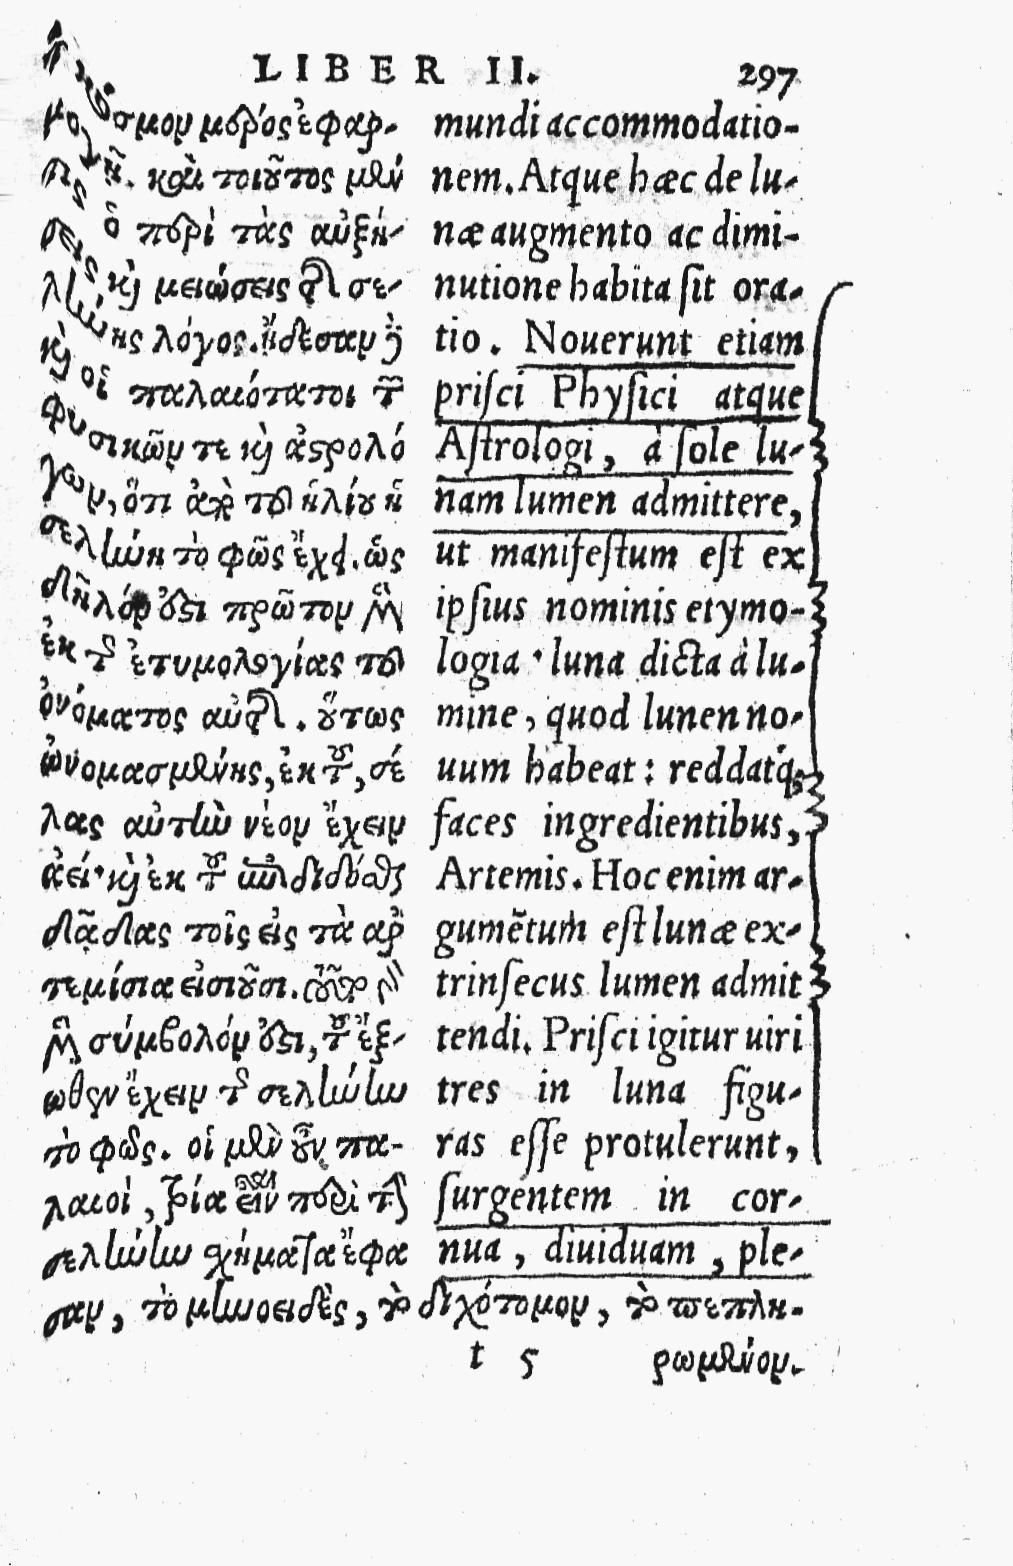 LIBER II. 297
κόσμου μέρος ἐφαρ-
μογῇ. καὶ τοιοῦτος μὲν
ὁ περὶ τὰς αὐξή-
σεις καὶ μειώσεις τῆς σε-
λήνης λόγος. ᾔδεσαν
καὶ οἱ παλαιότατοι τῶν
φυσικῶν τε καὶ ἀστρολό
γων, ὅτι ἀπὸ τοῦ ἡλίου ἡ
σελήνη τὸ φῶς ἔχει. ὡς
δῆλόν ἐστι πρῶτον μὲν
ἐκ τῆς ἐτυμολογίας τοῦ
ὀνόματος αὐτῆς. οὕτως
ὠνομασμένης, ἐκ τοῦ, σέ
λας αὐτὴν νέον ἔχειν
ἀεί· καὶ ἐκ τοῦ ἐπιδίδοσθαι
δᾷδας τοῖς εἰς τὰ ἀρ
τεμίσια εἰσιοῦσι. τοῦτο γὰρ
σύμβολόν ἐστι, τοῦ ἔξ-
ωθεν ἔχειν τὴν σελήνην
τὸ φῶς. οἱ μὲν οὖν πα-
λαιοὶ, τρία εἶναι περὶ τὴν
σελήνην σχήματα ἔφα
σαν, τὸ μηνοειδὲς, τὸ διχότομον, τὸ πεπλη-
mundi accommodatio-
nem. Atque hæc de lu-
næ augmento ac dimi-
nutione habita ſit ora-
tio. Nouerunt etiam
priſci Phyſici atque
Aſtrologi, à ſole lu-
nam lumen admittere,
ut manifeſtum eſt ex
ipſius nominis etymo-
logia· luna dicta à lu-
mine, quod lunen no-
uum habeat: reddatq́;
faces ingredientibus,
Artemis. Hoc enim ar-
gumẽtum eſt lunæ ex-
trinſecus lumen admit
tendi. Priſci igitur uiri
tres in luna figu-
ras eſſe protulerunt,
ſurgentem in cor-
nua, diuiduam, ple-
t 5 ρωμένον.